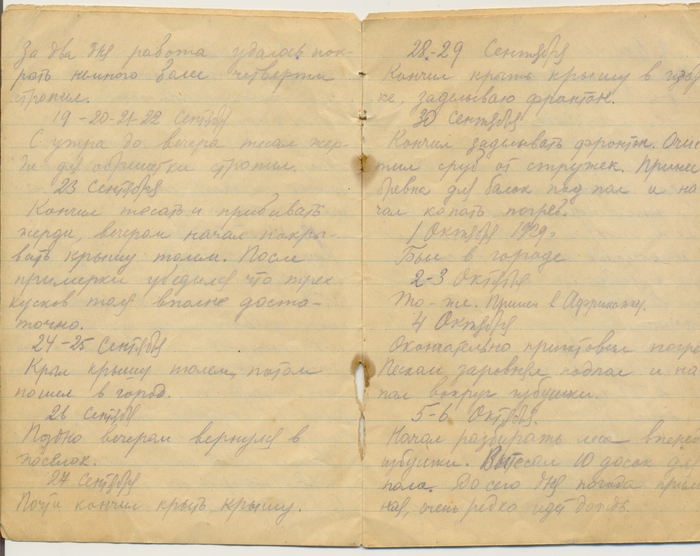 За два дня работа удалось пок-
рыть немного более четверти
стропил.
19-20-21-22 Сентября
С утра до вечера тесал жер-
ди для обрешетки стропил.
23 Сентября
Кончил тесать и прибивать
жерди, вечером начал покры-
вать крышу толем. После
примерки убедился что трех
кусков толя вполне доста-
точно.
24-25 Сентября
Крыл крышу толем, потом
пошел в город.
26 Сентября
Поздно вечером вернулся в
поселок.
27 Сентября
Почти кончил крыть крышу.
28-29 Сентября
Кончил крыть крышу в избу
ке, заделываю фронтон.
30 Сентября
Кончил заделывать фронтон. Очис
тил сруб от стружек. Принес
бревна для балок под пол и на
чал копать погреб.
1 Октября 1929г
Был в городе
2-3 Октября
То-же. Пришел
4 Октября
Окончательно приготовил погре
Песком заровнял подпол и на
пал вокруг избушки.
5-6 Октября.
Начал разбирать леса впереди
избушки. 10 досок для
пола. До сего дня погода
ная, очень редко идет дождь.